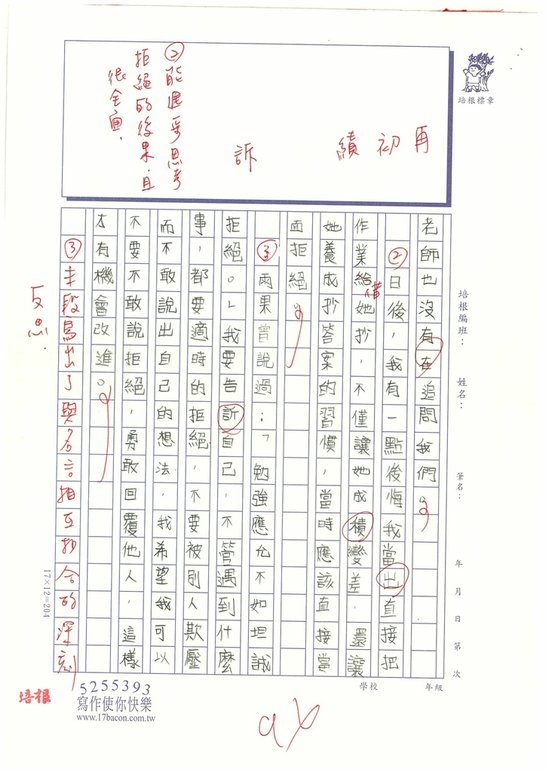 再
初
績
訴
②能進爭思考
拒絕的後果,且
很全面.
培根標章
培根編班：
姓名：
筆名：
年 月 日 第 次
老師也沒有在追問我們。
②日後，我有一點後悔我當出直接把
作業給她抄，不僅讓她成積變差，還讓
借
她養成抄答案的習慣，當時應該直接當
面拒絕。
③雨果曾說過：「勉強應允不如坦誠
拒絕。」我要告訴自己，不管遇到什麼
事，都要適時的拒絕，不要被別人欺壓
而不敢說出自己的想法，我希望我可以
不要不敢說拒絕，勇敢回覆他人，這樣
才有機會改進。
③末段寫出了與名言相互扣合的深刻
反思.
17×12=204
學校
年級
培根
5255393
寫作使你快樂
www.17bacon.com.tw